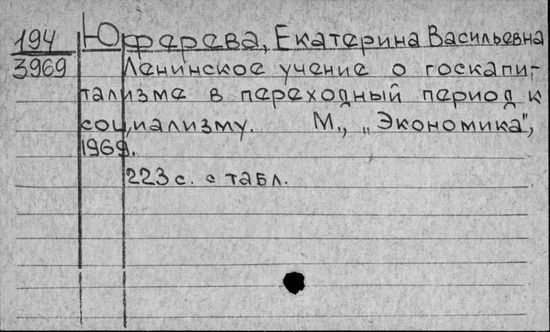 194 Юферева, Екатерина Васильевна
3969 Ленинское учение о госкапи-
тализме в переходный период к
социализму. М., „Экономика",
1969.
223 с. с табл.